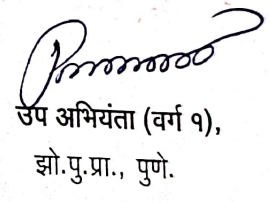 उप अभियंता (वर्ग १),
झो.पु.प्रा., पुणे.